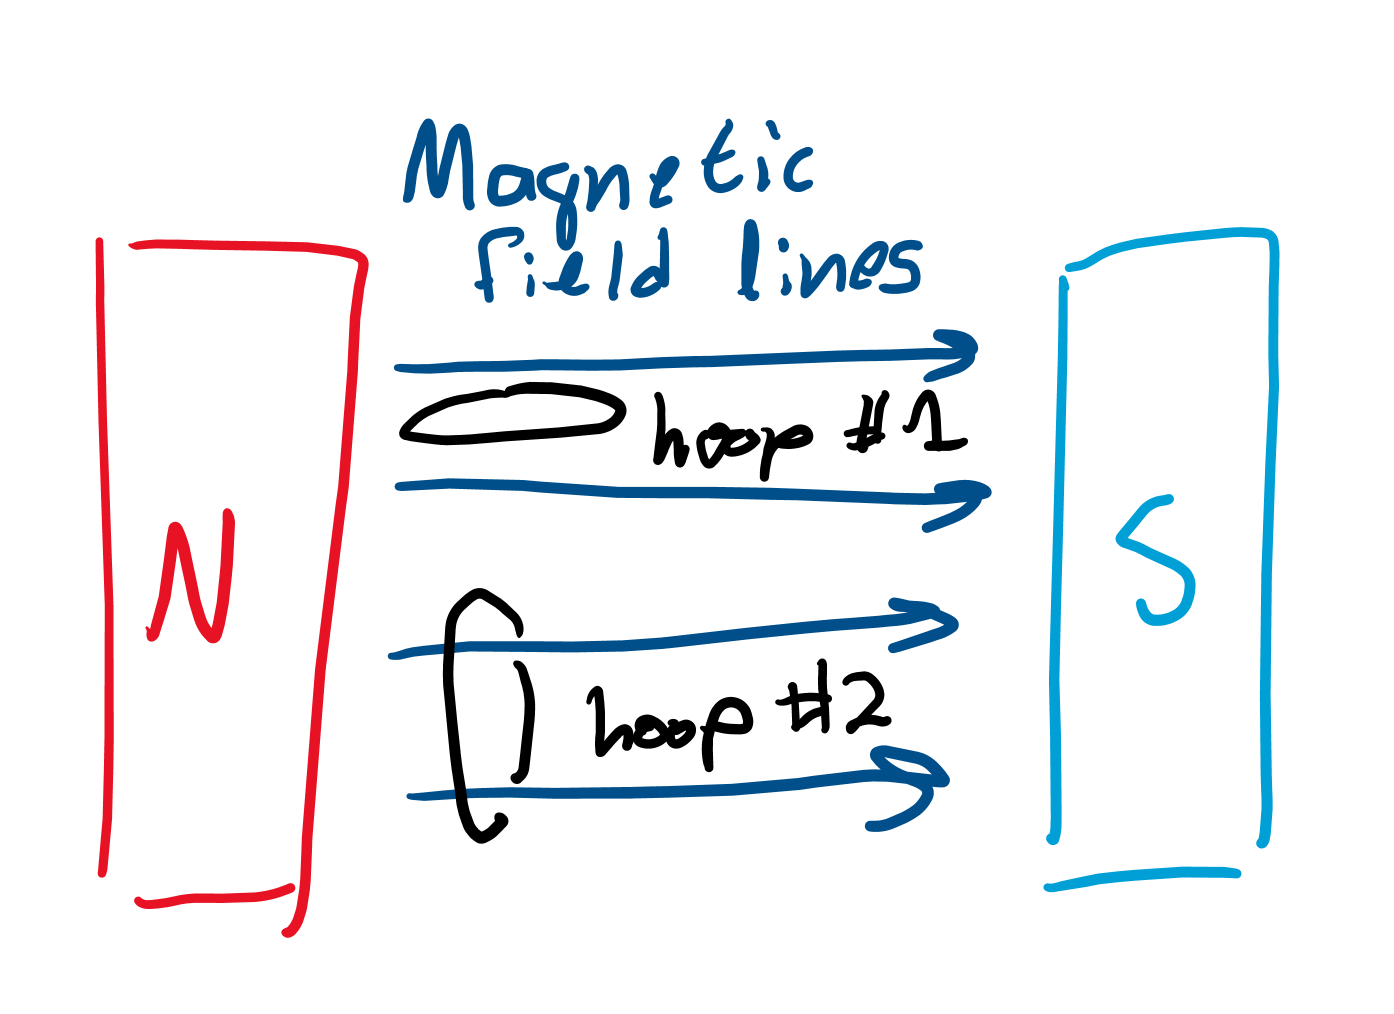 Magnetic
field lines
hoop #1
N
S
hoop #2